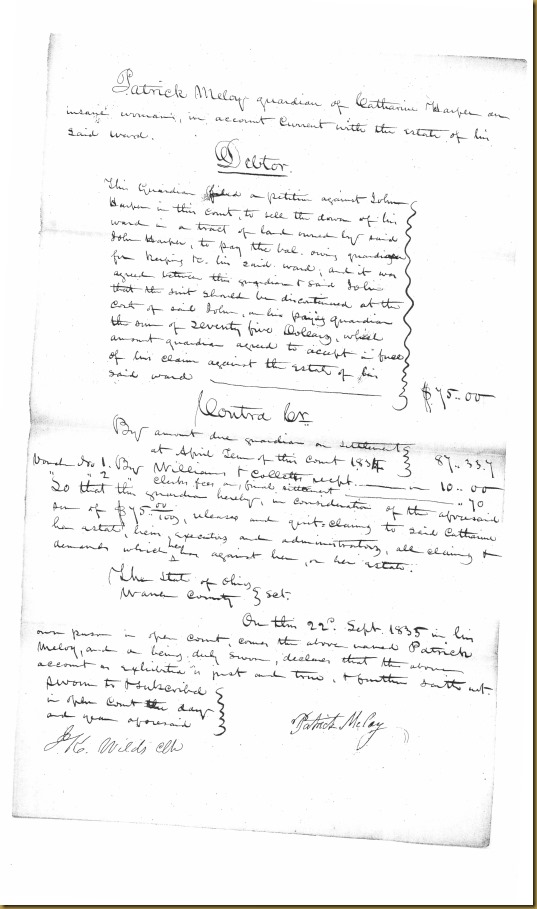 Patrick Meloy guardian of Catharine Harper an
insane woman, in account Current with the estate of his
said ward.
Debtor.
This Guardian filed a petition against John
Harper in this Court, to sell the dower of his
ward in a tract of land owned by said
John Harper, to pay the bal. owing guardian
for keeping &c. his said ward, and it was
agreed between this guardian & said John
that the suit should be discontinued at the
Cost of said John, on his paying guardian
the sum of Seventy five Dollars, which
amount guardian agreed to accept in full
of his claim against the Estate of his
said ward $75..00
Contra Cr.
By amount due guardian on settlement
at April Term of this Court 1834 87..33.7
Vouch No 1. By Williams & Colletts receipt 10..00
" " 2 " Clerks fees on final settlement ..70
So that this guardian hereby, in consideration of the aforesaid
sum of $75 00/100, releases and quit-claims to said Catharine
her estate, heirs, executors and administrators, all claims &
demands which he has against her, or her Estate.
The State of Ohio,
Warren County } Sct.
On this 22d. Sept. 1835 in his
own person in open Court, comes the above named Patrick
Meloy, and being duly sworn, declares that the above
account as exhibited is just and true, & further saith not
Sworn to & subscribed
in open Court the day
and year aforesaid
Patrick Meloy
J. K. Wilds Clk